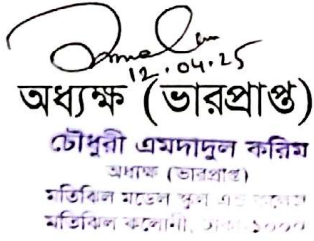 12.04.25
অধ্যক্ষ (ভারপ্রাপ্ত)
চৌধুরী এমদাদুল করিম
অধ্যক্ষ (ভারপ্রাপ্ত)
মতিঝিল মডেল স্কুল এন্ড কলেজ
মতিঝিল কলোনী, ঢাকা-১০০০